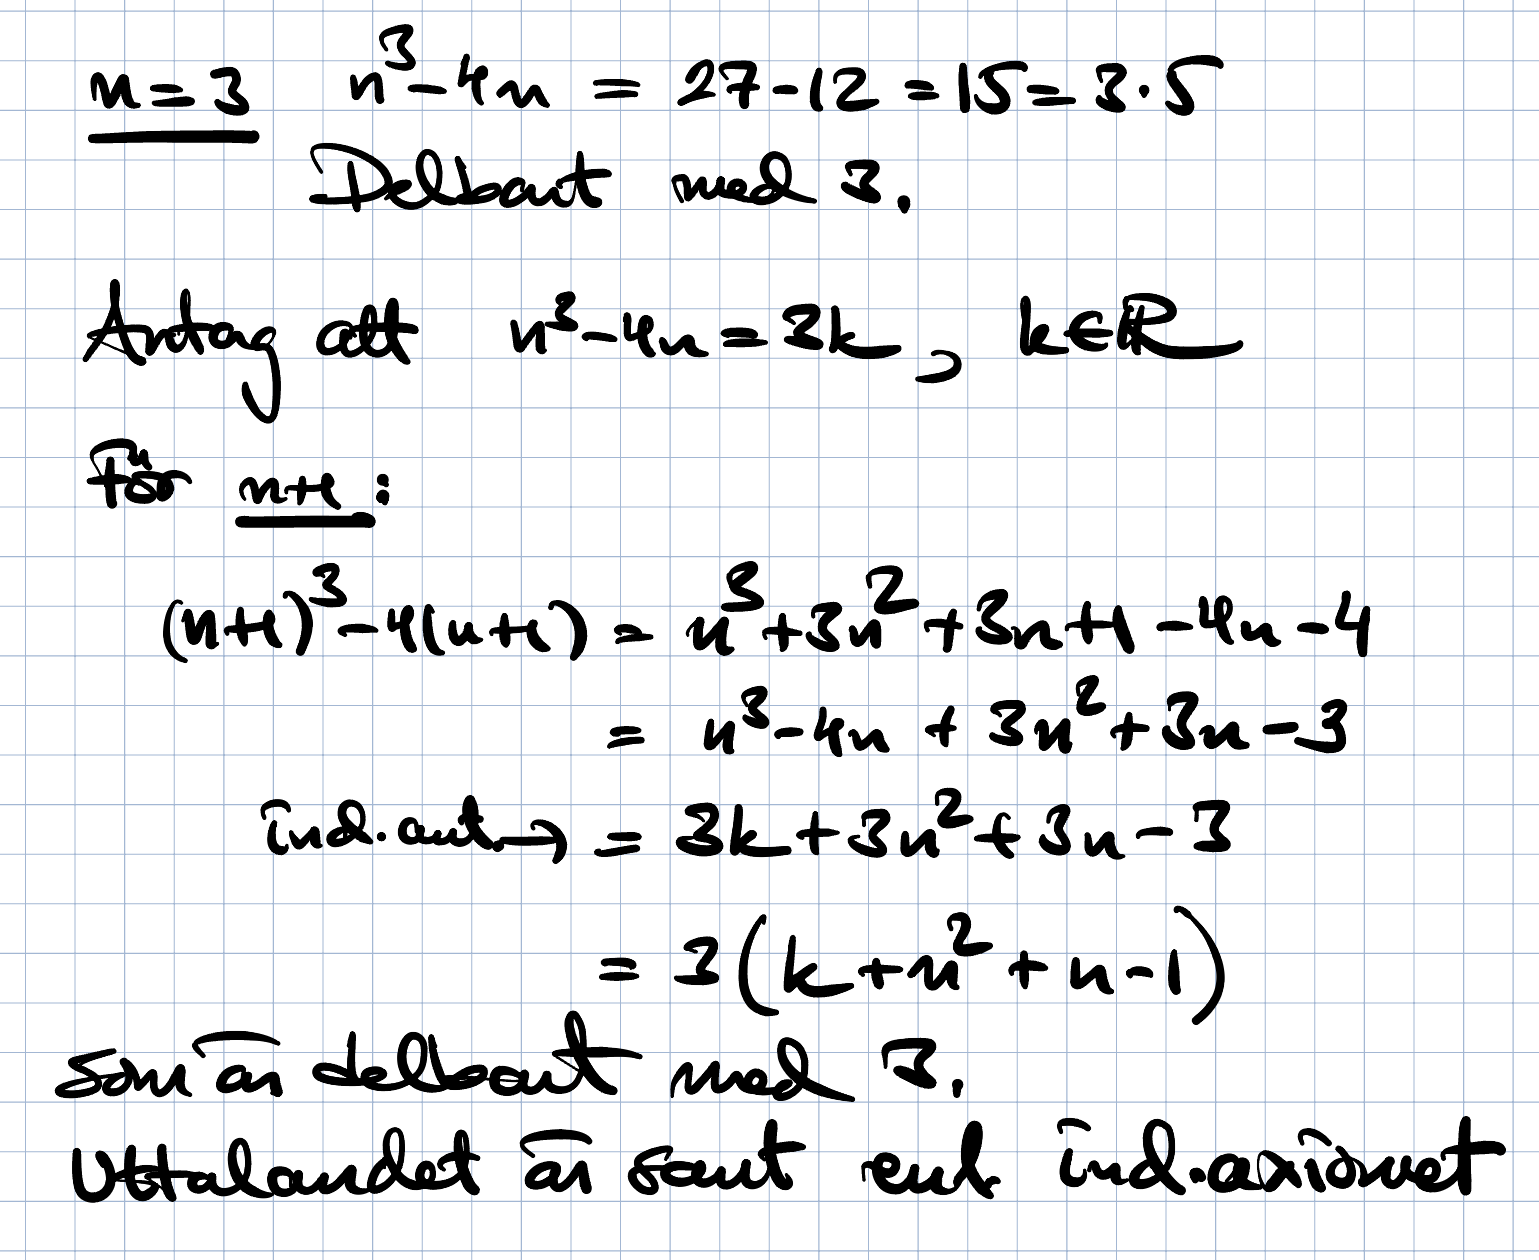 n=3 n³-4n = 27-12 = 15 = 3·5
Delbart med 3.
Antag att n³-4n=3k, k∈ℝ
För n+1:
(n+1)³-4(n+1) = n³+3n²+3n+1-4n-4
= n³-4n+3n²+3n-3
ind.ant.→ = 3k+3n²+3n-3
= 3(k+n²+n-1)
som är delbart med 3.
Uttalandet är sant enl. ind.axiomet